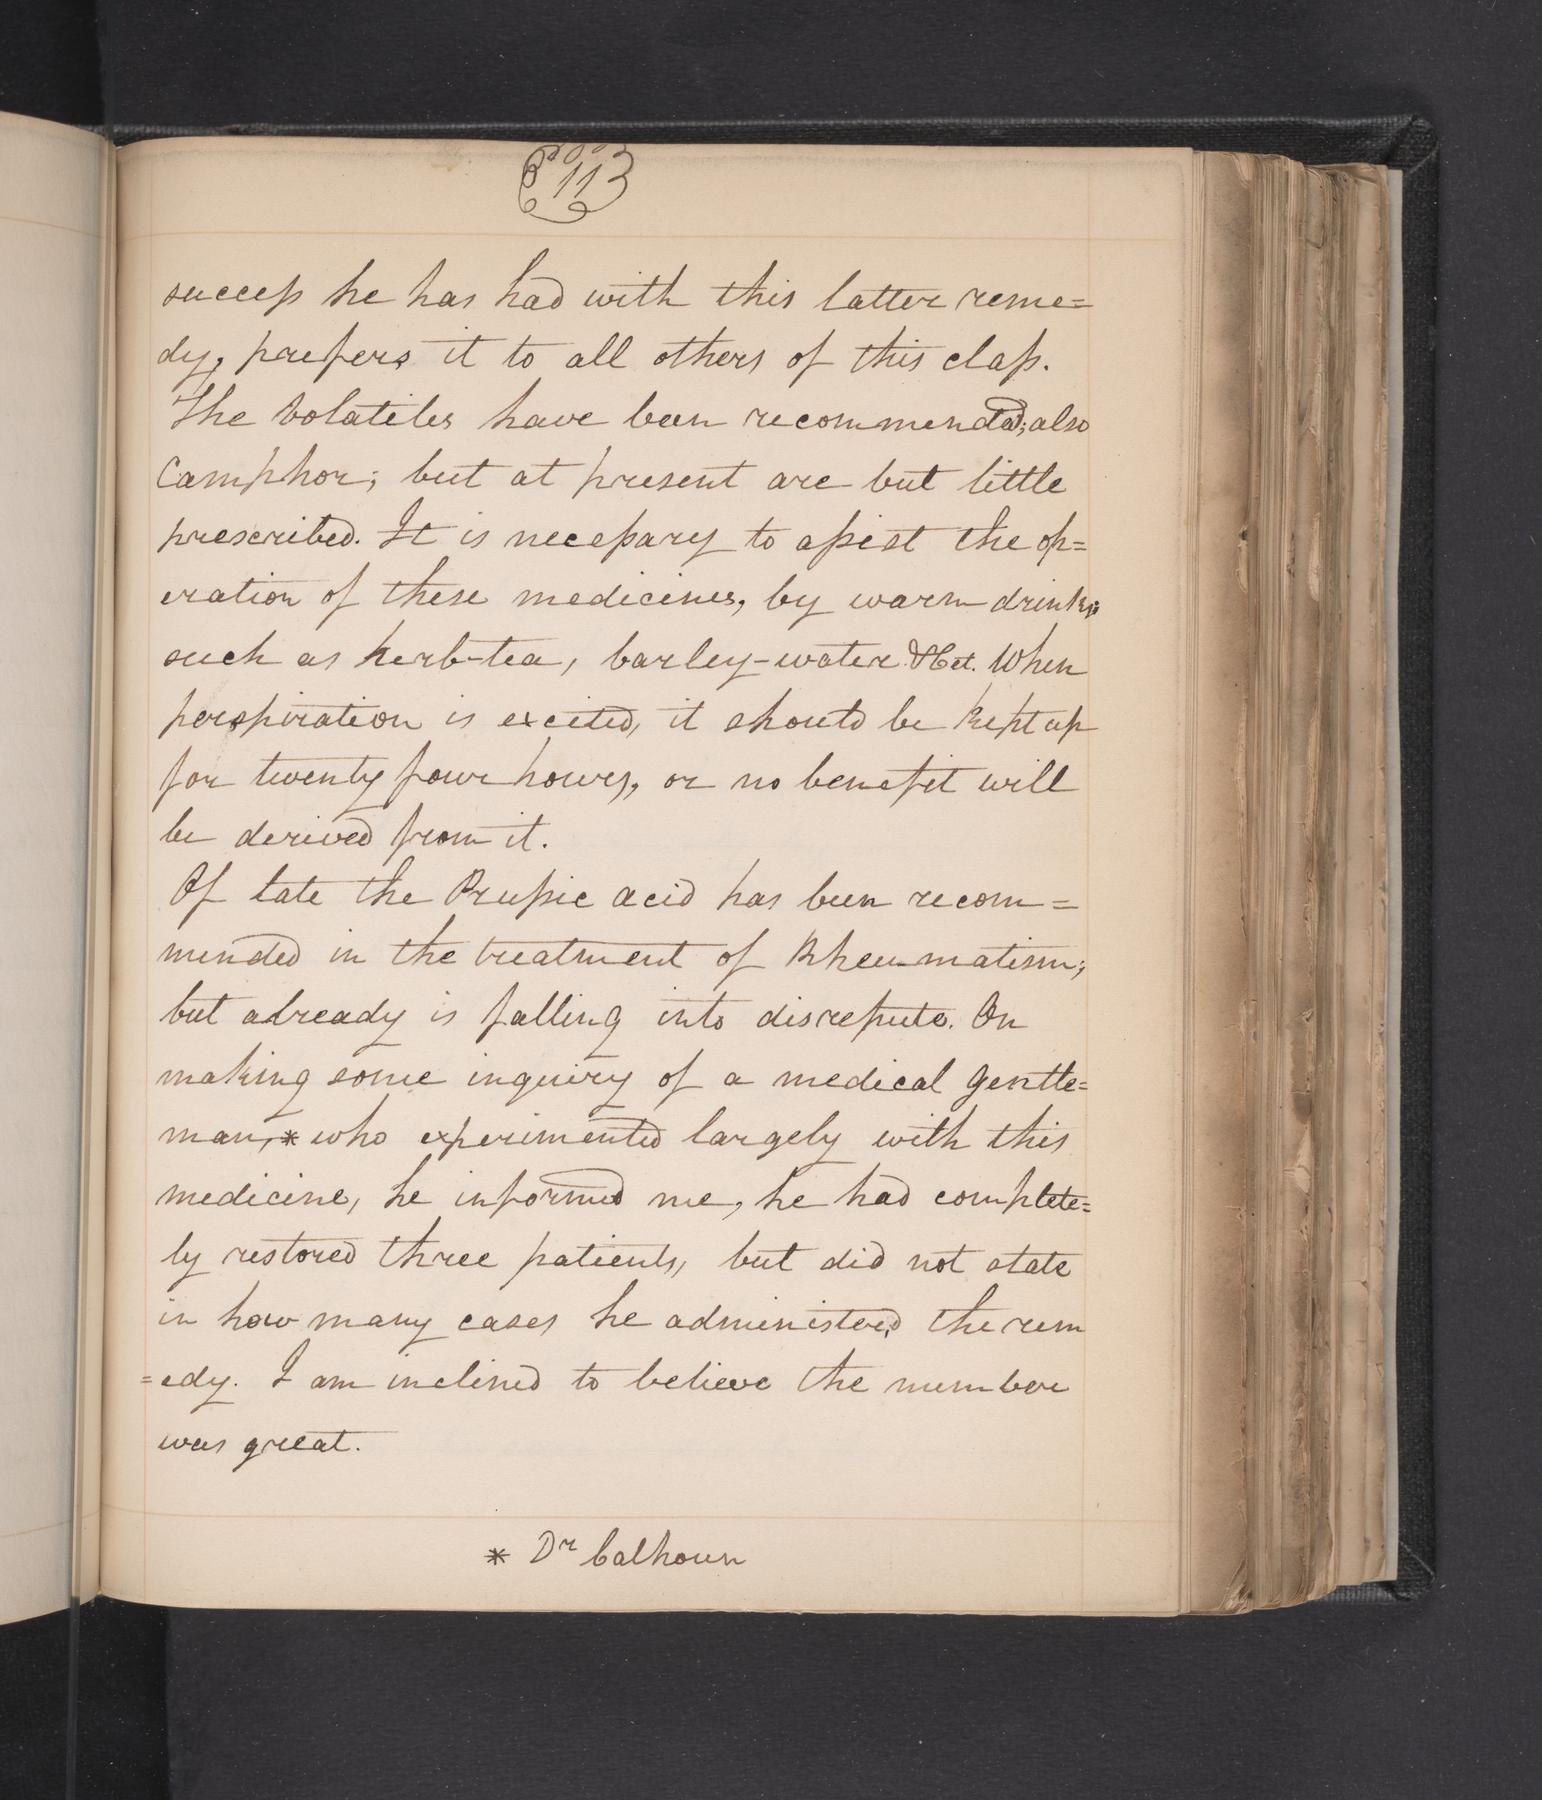 113
success he has had with this latter reme=
dy, prefers it to all others of this class.
The Volatiles have been recommended; also
Camphor; but at present are but little
prescribed. It is necessary to assist the op=
eration of these medicines, by warm drinks
such as herb-tea, barley-water &cet. When
perspiration is excited, it should be kept up
for twenty four hours, or no benefit will
be derived from it.
Of late the Prussic acid has been recom=
mended in the treatment of Rheumatism;
but already is falling into disrepute. On
making some inquiry of a medical gentle=
man,* who experimented largely with this
medicine, he informed me, he had complete=
ly restored three patients, but did not state
in how many cases he administered the rem
=edy. I am inclined to believe the number
was great.
* Dr Calhoun